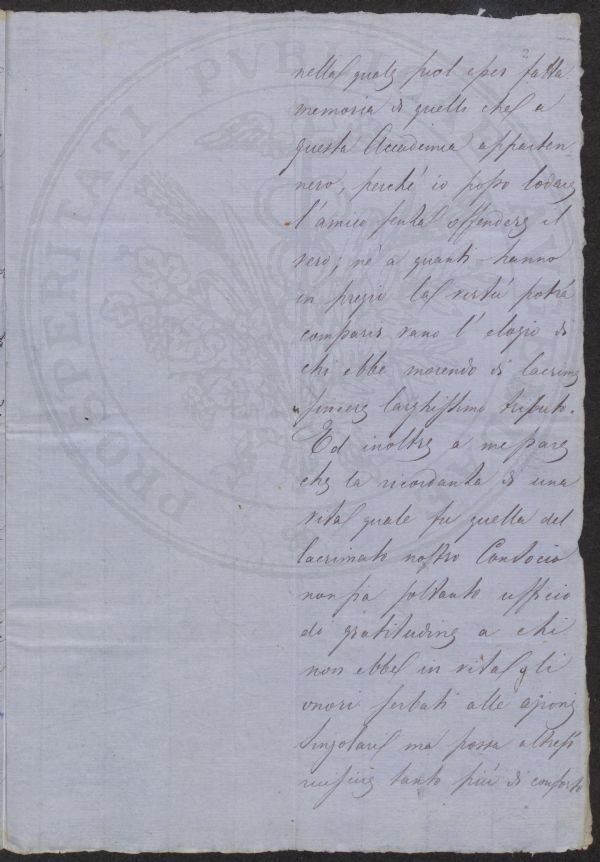 2
nella quale suol esser fatta
memoria di quelli che a
questa Accademia apparten-
nero, perchè io posso lodare
l'amico senza offendere il
vero; nè a quanti hanno
in pregio la virtù potrà
comparir vano l'elogio di
chi ebbe morendo di lacrime
sincere larghissimo tributo.
Ed inoltre a me pare
che la ricordanza di una
vita quale fu quella del
lacrimato nostro Consocio
non sia soltanto ufficio
di gratitudine a chi
non ebbe in vita gli
onori serbati alle azioni
singolari ma possa altresì
riuscire tanto più di conforto
PROSPERITATI PVBLICAE